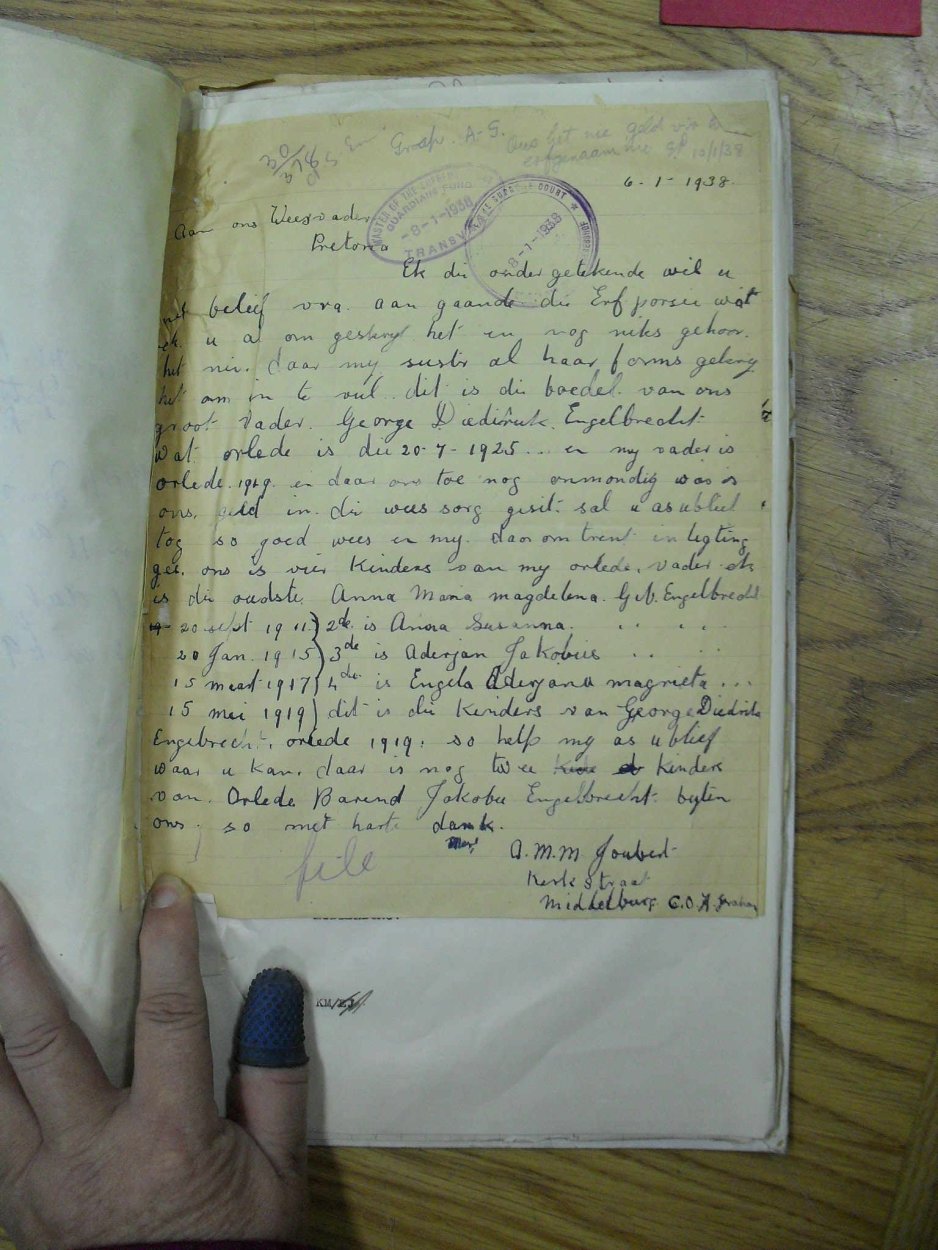 Groep A-G.
Ons het nie geld vir
erfgenaam nie 10/1/38
6-1-1938.
MASTER OF THE SUPREME
GUARDIANS FUND
-8-1-1938
TRANSVAAL
SUPREME COURT
8-1-1938
Aan ons Weesvader
Pretoria
Ek die ondergetekende wil u
met beleif vra aan gaande die Erf porsie wat
ek u al om geskryf het en nog niks gehoor
het nie. daar my suster al haar forms gekry
het om in te vul dit is die boedel van ons
groot vader. George Diedirick Engelbrecht
wat orlede is die 20-7-1925... en my vader is
orlede. 1919. en daar ons toe nog onmondig was is
ons geld in die wees sorg gesit. sal u asublief
tog so goed wees en my daar omtrent in ligting
gee. ons is vier Kinders van my orlede. vader ek
is die oudste Anna Maria magdelena. Geb. Engelbrecht
20 sept 1911.) 2de is Anna Susanna. " " "
20 Jan. 1915) 3de is Aderjan Jakobus .. .. ..
15 maart 1917) 4de is Engela Aderjana magrieta ...
15 mei 1919) dit is die Kinders van George Diedrik
Engebrecht. orlede 1919. so help my as ublief
waar u kan. daar is nog twee Kinders
van. Orlede Barend Jakobus Engelbrecht byten
ons. so met harte dank.
Mev
A.M.M Joubert
Kerk straat
Middelburg C.O.
file
KM/